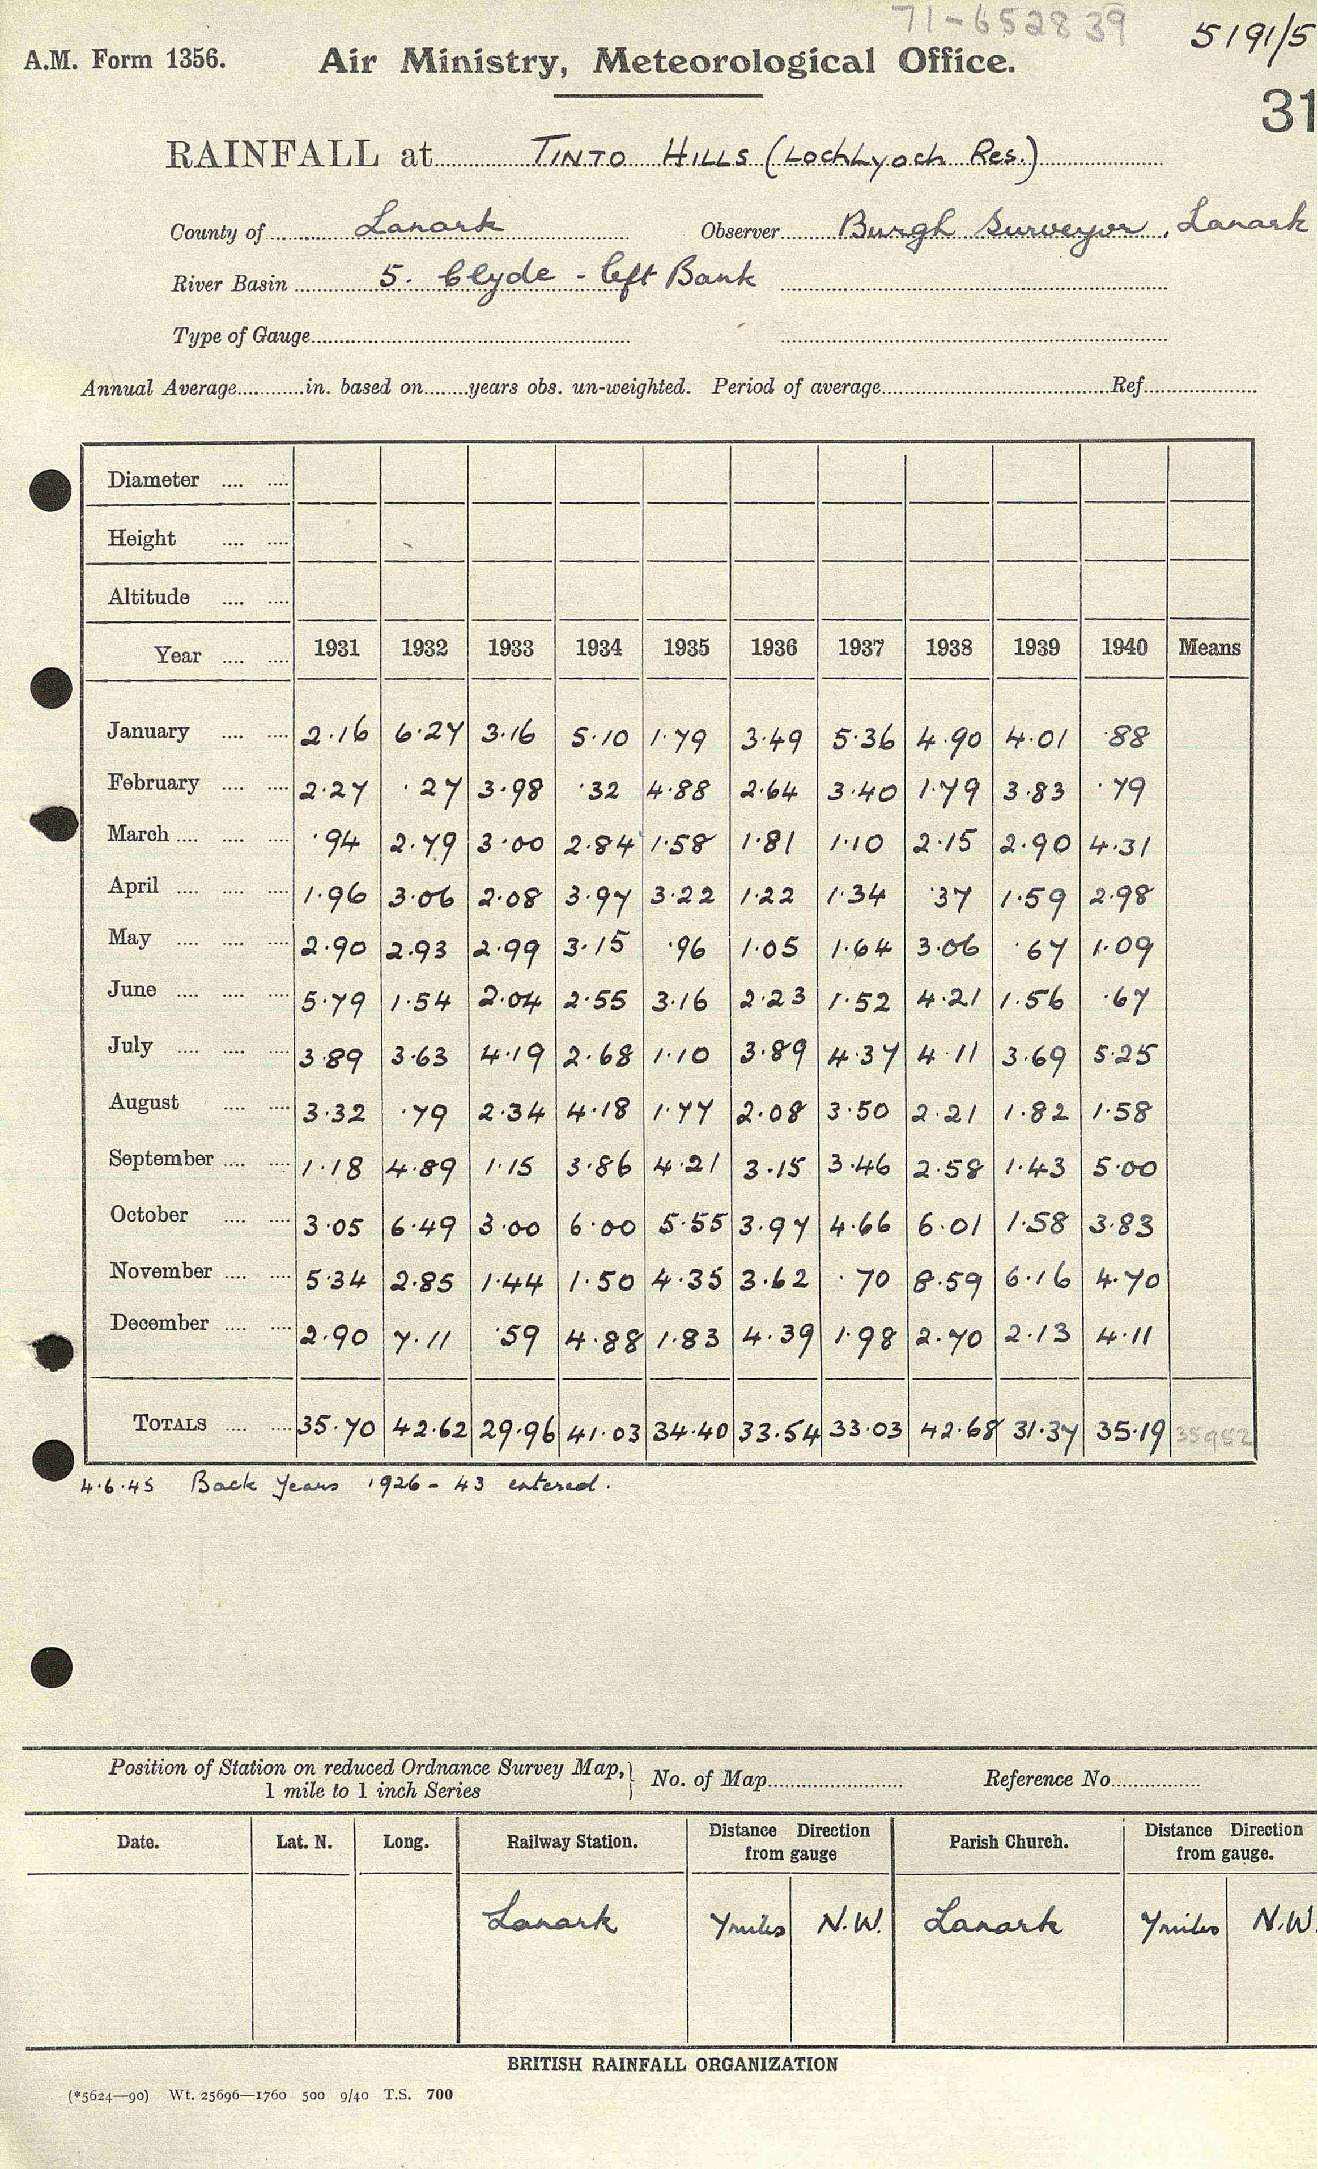 71-652839
5191/5
A.M. Form 1356. Air Ministry, Meteorological Office.
31
RAINFALL at TINTO HILLS (LOCHLYOCH RES.)
County of Lanark Observer Burgh Surveyor, Lanark
River Basin 5. Clyde - left Bank
Type of Gauge
Annual Average in. based on years obs. un-weighted. Period of average Ref.
Diameter
Height
Altitude
Year 1931 1932 1933 1934 1935 1936 1937 1938 1939 1940 Means
January 2.16 6.27 3.16 5.10 1.79 3.49 5.36 4.90 4.01 .88
February 2.27 .27 3.98 .32 4.88 2.64 3.40 1.79 3.83 .79
March .94 2.79 3.00 2.84 1.58 1.81 1.10 2.15 2.90 4.31
April 1.96 3.06 2.08 3.97 3.22 1.22 1.34 .37 1.59 2.98
May 2.90 2.93 2.99 3.15 .96 1.05 1.64 3.06 .67 1.09
June 5.79 1.54 2.04 2.55 3.16 2.23 1.52 4.21 1.56 .67
July 3.89 3.63 4.19 2.68 1.10 3.89 4.37 4.11 3.69 5.25
August 3.32 .79 2.34 4.18 1.77 2.08 3.50 2.21 1.82 1.58
September 1.18 4.89 1.15 3.86 4.21 3.15 3.46 2.58 1.43 5.00
October 3.05 6.49 3.00 6.00 5.55 3.97 4.66 6.01 1.58 3.83
November 5.34 2.85 1.44 1.50 4.35 3.62 .70 8.59 6.16 4.70
December 2.90 7.11 .59 4.88 1.83 4.39 1.98 2.70 2.13 4.11
TOTALS 35.70 42.62 29.96 41.03 34.40 33.54 33.03 42.68 31.37 35.19 35952
4.6.45 Back Years 1926-43 entered.
Position of Station on reduced Ordnance Survey Map, No. of Map Reference No.
1 mile to 1 inch Series
Date. Lat. N. Long. Railway Station. Distance Direction from gauge Parish Church. Distance Direction from gauge.
Lanark 7 miles N.W. Lanark 7 miles N.W.
BRITISH RAINFALL ORGANIZATION
(*5624—90) Wt. 25696—1760 500 9/40 T.S. 700